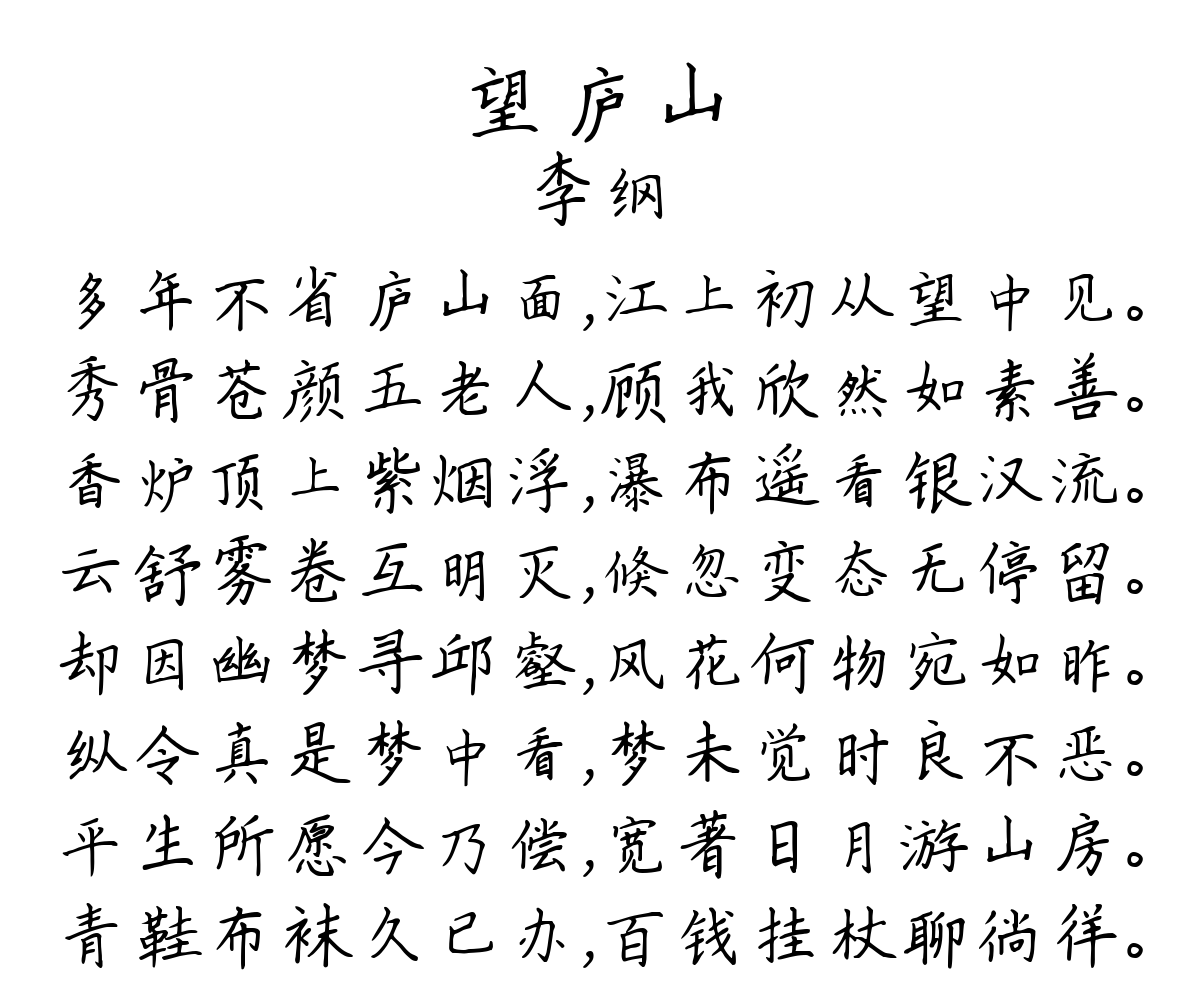 望庐山
李纲
多年不省庐山面,江上初从望中见。
秀骨苍颜五老人,顾我欣然如素善。
香炉顶上紫烟浮,瀑布遥看银汉流。
云舒雾卷互明灭,倏忽变态无停留。
却因幽梦寻邱壑,风花何物宛如昨。
纵令真是梦中看,梦未觉时良不恶。
平生所愿今乃偿,宽著日月游山房。
青鞋布袜久已办,百钱挂杖聊徜徉。